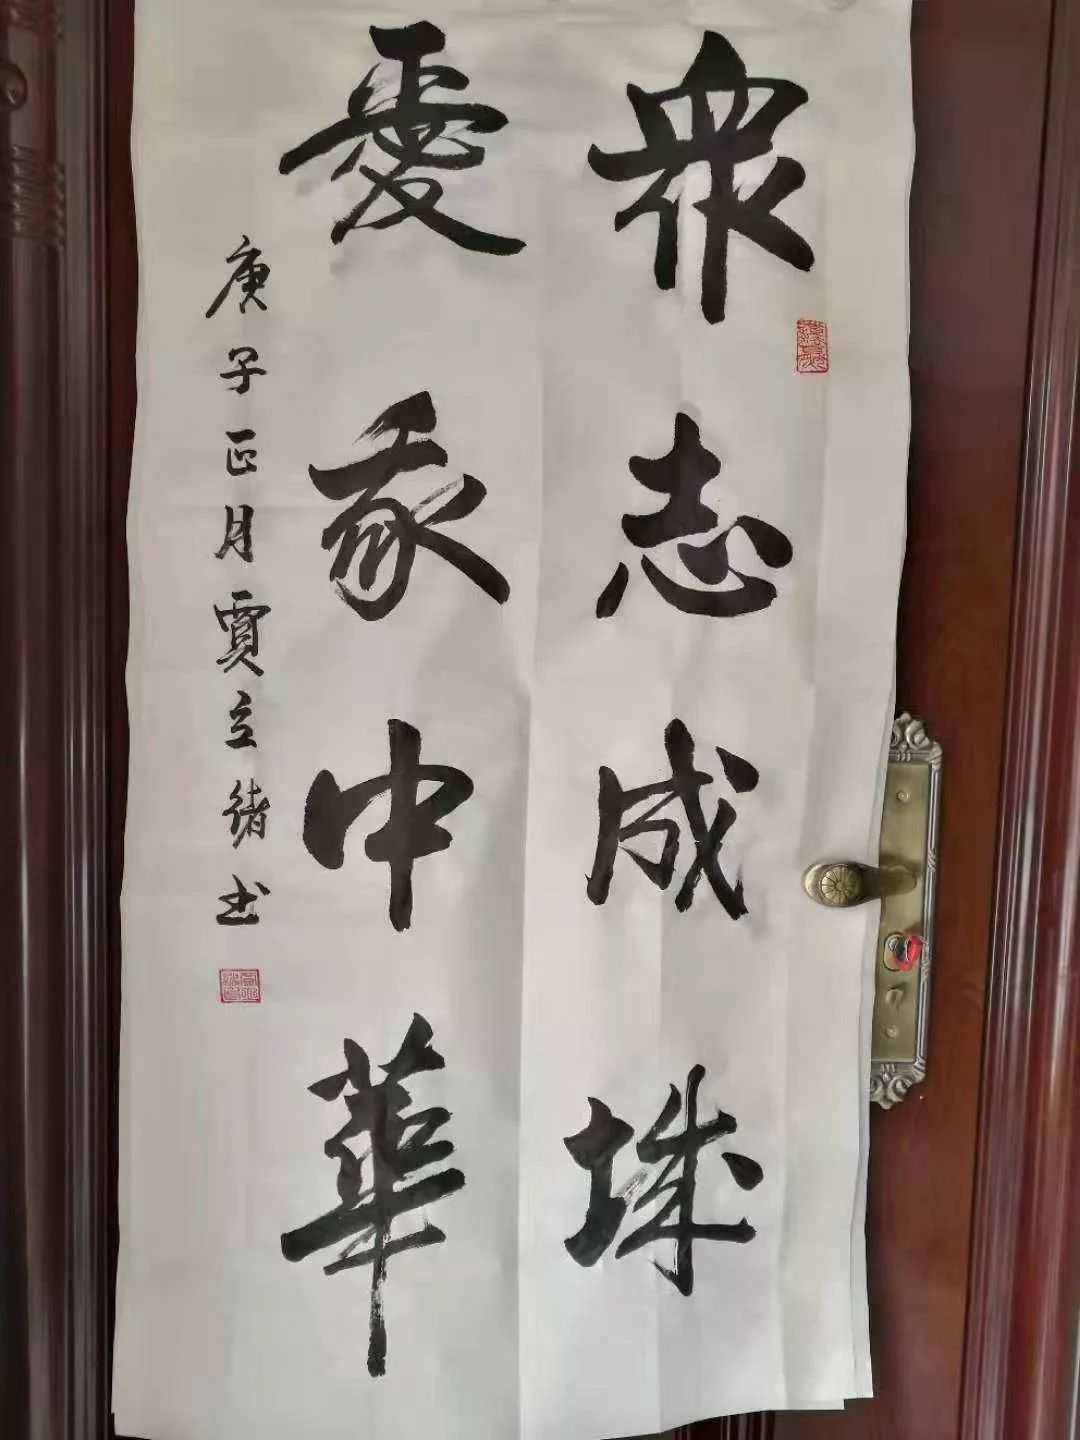 眾志成城
愛我中華
庚子正月賈立緒书